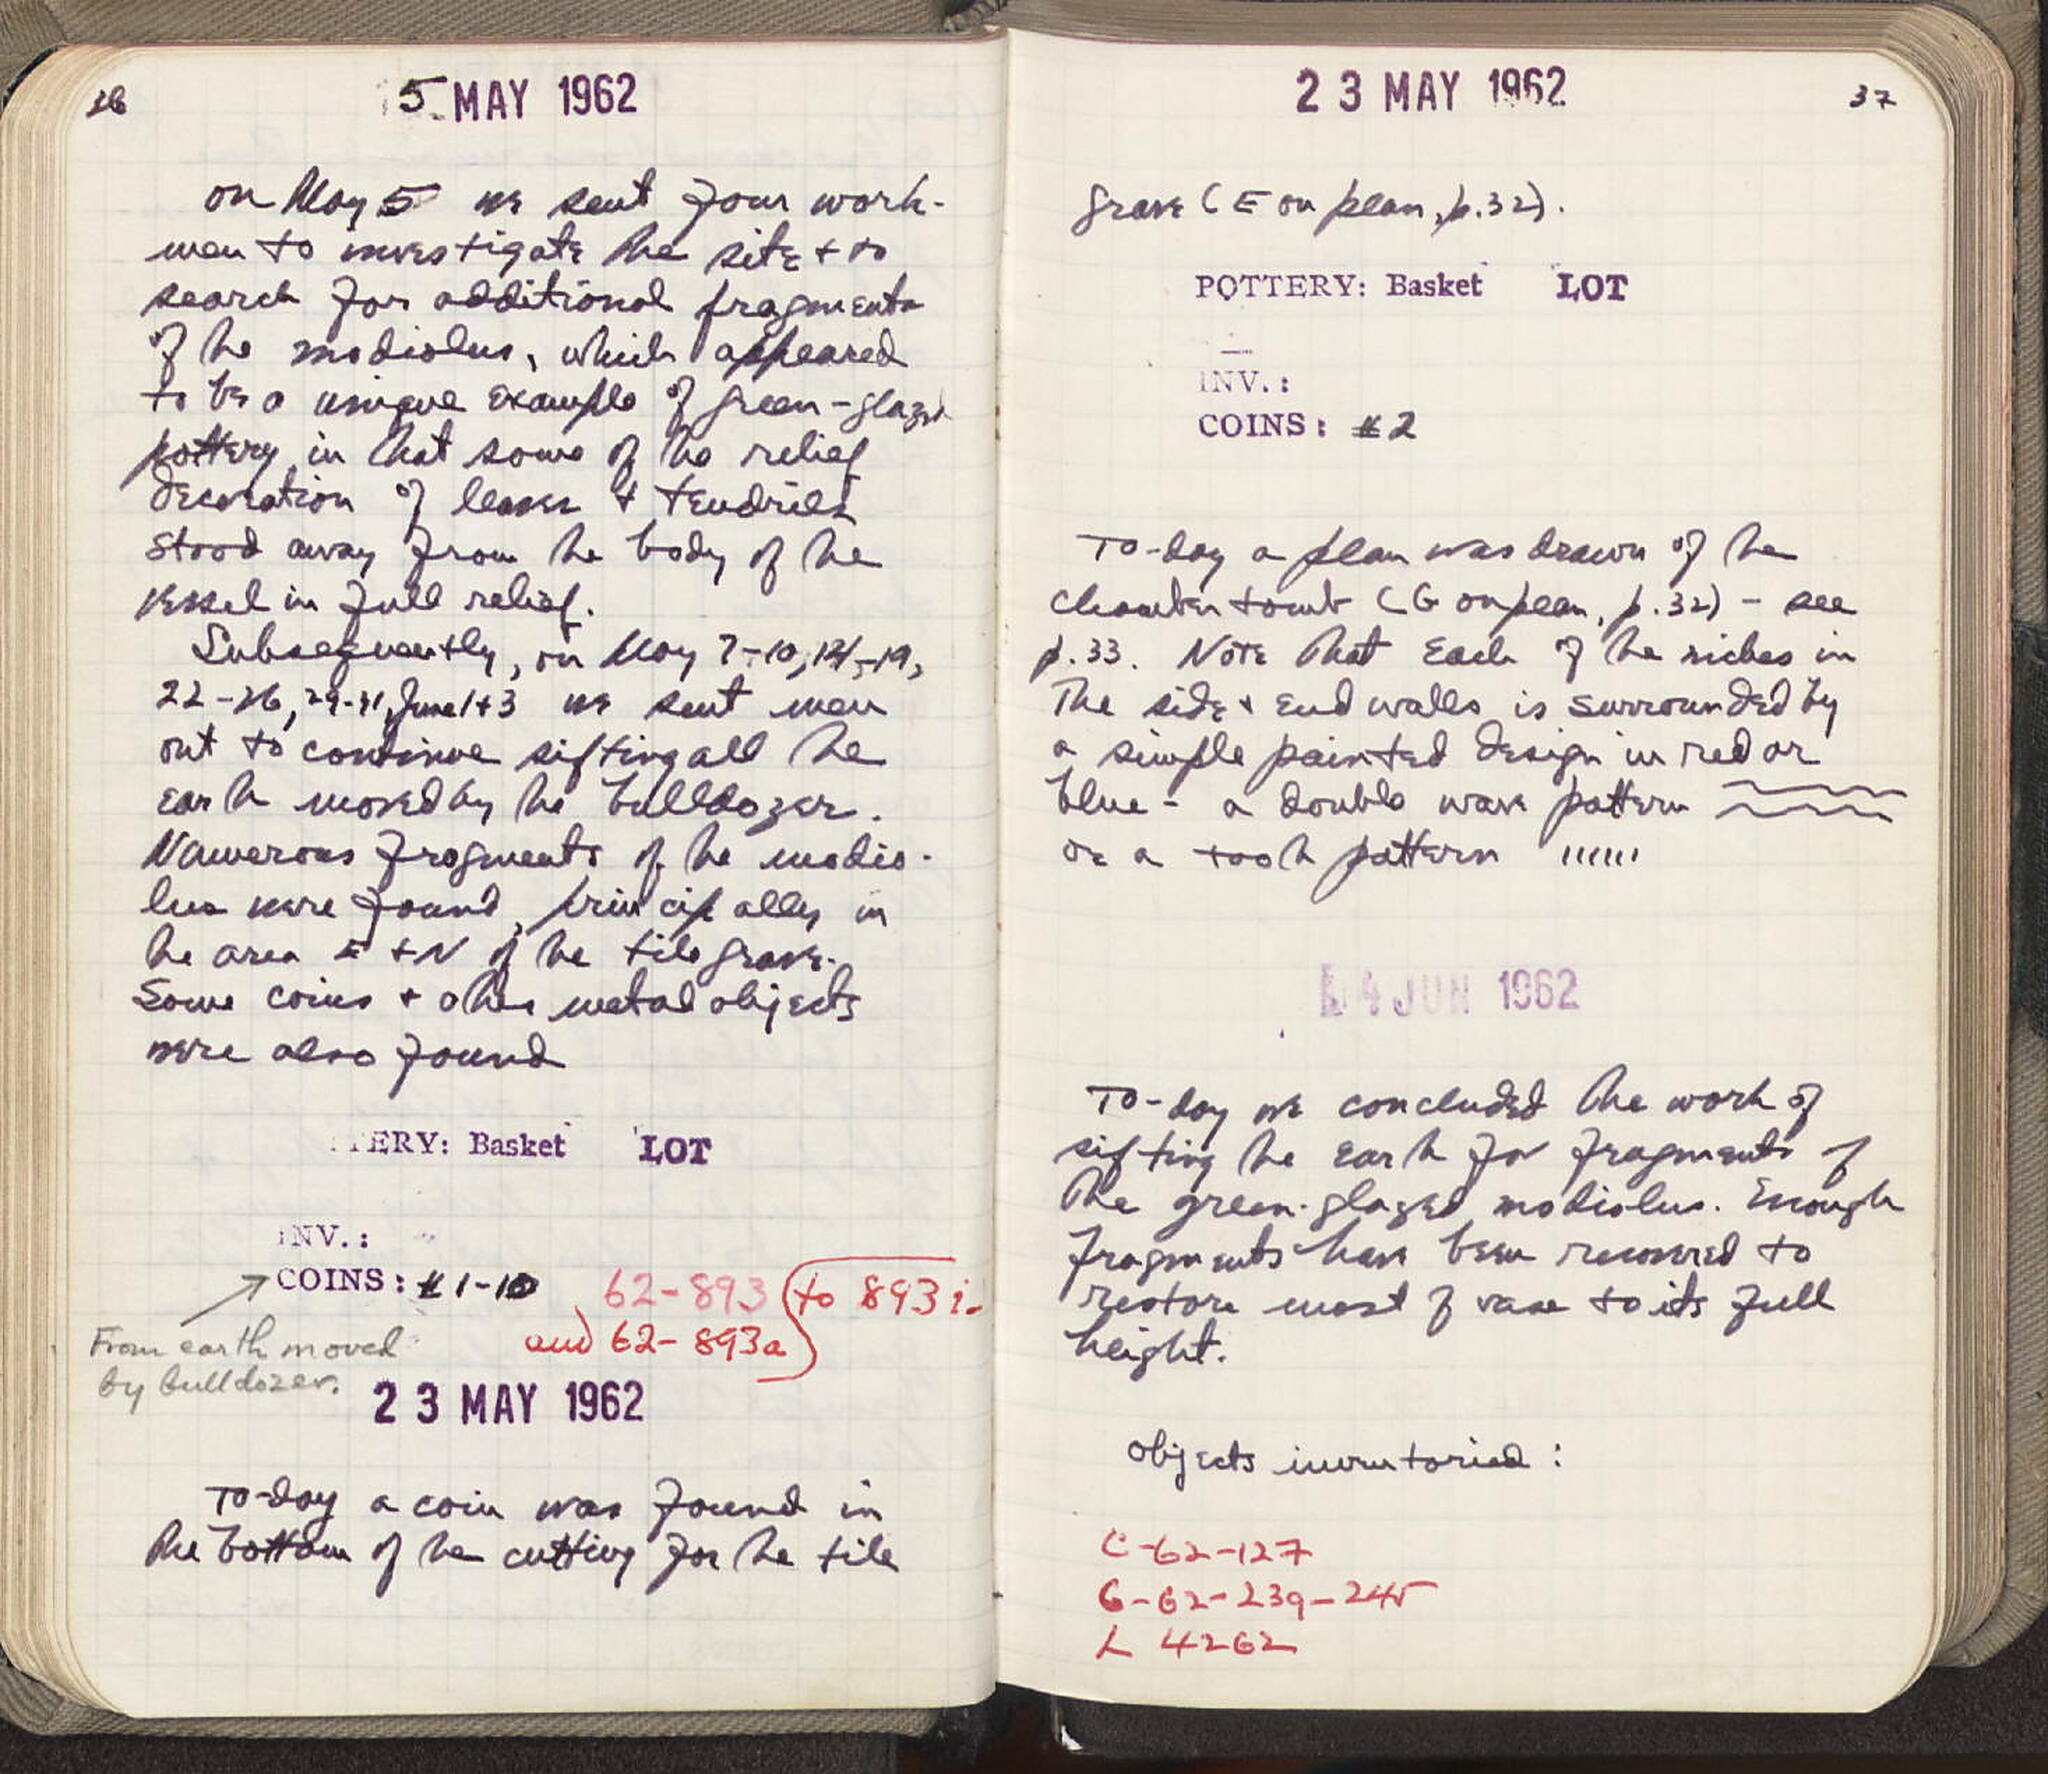 36
5 MAY 1962
On May 5 we sent four work-
men to investigate the site + to
search for additional fragments
of the modiolus, which appeared
to be a unique example of green-glazed
pottery in that some of the relief
decoration of leaves + tendrils
stood away from the body of the
vessel in full relief.
Subsequently, on May 7-10, 14-19,
22-26, 29-31, June 1+3 we sent men
out to continue sifting all the
earth moved by the bulldozer.
Numerous fragments of the modio-
lus were found, principally in
the area E + N of the tile grave.
Some coins + other metal objects
were also found
TERY: Basket LOT
INV.:
COINS: #1-10 62-893 to 893 i.
and 62-893a
From earth moved
by bulldozer.
23 MAY 1962
To-day a coin was found in
the bottom of the cutting for the tile
23 MAY 1962
37
grave (E on plan, p.32).
POTTERY: Basket LOT
—
INV.:
COINS: #2
To-day a plan was drawn of the
chamber tomb (G on plan, p.32) - see
p.33. Note that each of the niches in
the side + end walls is surrounded by
a simple painted design in red or
blue - a double wave pattern
or a tooth pattern
4 JUN 1962
To-day we concluded the work of
sifting the earth for fragments of
the green-glazed modiolus. Enough
fragments have been recovered to
restore most of vase to its full
height.
Objects inventoried:
C-62-127
G-62-239-245
L 4262